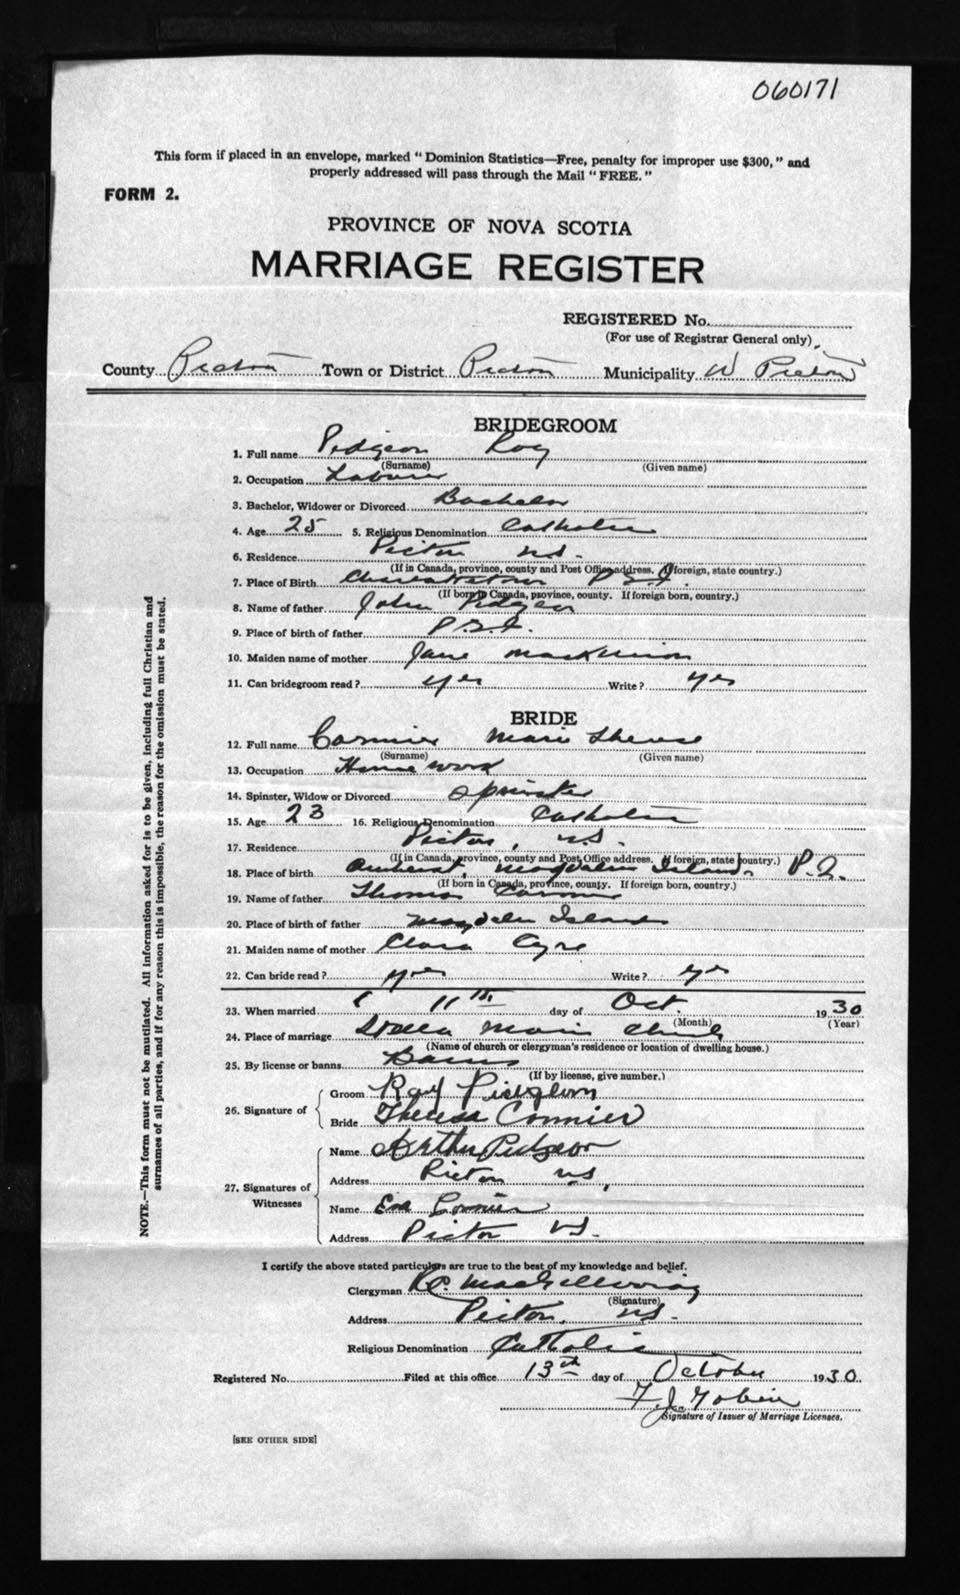 060171
This form if placed in an envelope, marked "Dominion Statistics—Free, penalty for improper use $300," and
properly addressed will pass through the Mail "FREE."
FORM 2.
PROVINCE OF NOVA SCOTIA
MARRIAGE REGISTER
REGISTERED No.
(For use of Registrar General only)
County Pictou Town or District Pictou Municipality W Pictou
BRIDEGROOM
1. Full name Pidgeon Roy
(Surname) (Given name)
2. Occupation Laborer
3. Bachelor, Widower or Divorced Bachelor
4. Age 25 5. Religious Denomination Catholic
6. Residence Pictou N.S.
(If in Canada, province, county and Post Office address. If foreign, state country.)
7. Place of Birth Charlottetown P.E.I.
(If born in Canada, province, county. If foreign born, country.)
8. Name of father John Pidgeon
9. Place of birth of father P.E.I.
10. Maiden name of mother Jane MacKinnon
11. Can bridegroom read? yes Write? yes
BRIDE
12. Full name Cormier Marie Therese
(Surname) (Given name)
13. Occupation House work
14. Spinster, Widow or Divorced Spinster
15. Age 23 16. Religious Denomination Catholic
17. Residence Pictou, N.S.
(If in Canada, province, county and Post Office address. If foreign, state country.)
18. Place of birth Amherst, Magdalen Islands P.Q.
(If born in Canada, province, county. If foreign born, country.)
19. Name of father Thomas Cormier
20. Place of birth of father Magdalen Islands
21. Maiden name of mother Clara Cyre
22. Can bride read? yes Write? yes
23. When married 11th day of Oct. 1930
(Month) (Year)
24. Place of marriage Stella Maris Church
(Name of church or clergyman's residence or location of dwelling house.)
25. By license or banns Banns
(If by license, give number.)
26. Signature of
Groom Roy Pidgeon
Bride Theresa Cormier
27. Signatures of Witnesses
Name Arthur Pidgeon
Address Pictou N.S.
Name Eva Cormier
Address Pictou N.S.
I certify the above stated particulars are true to the best of my knowledge and belief.
Clergyman MacGillivray
(Signature)
Address Pictou, N.S.
Religious Denomination Catholic
Registered No. Filed at this office 13th day of October 1930.
F. J. Tobin
Signature of Issuer of Marriage Licenses.
[SEE OTHER SIDE]
NOTE.—This form must not be mutilated. All information asked for is to be given, including full Christian and
surnames of all parties, and if for any reason this is impossible, the reason for the omission must be stated.